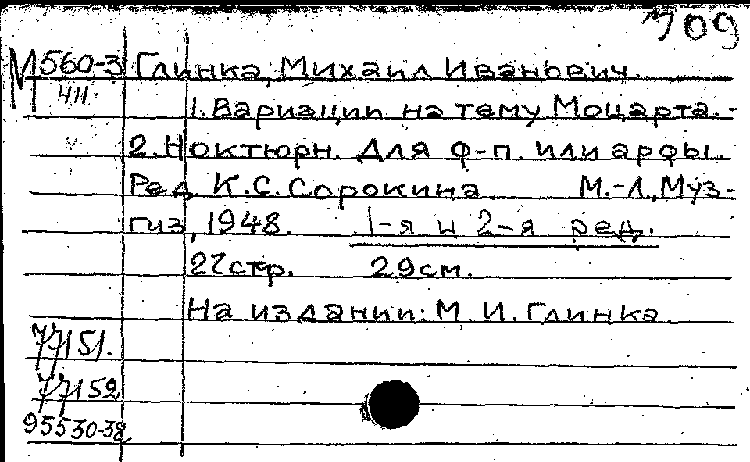 709
М560-3 Глинка, Михаил Иванович.
411 1. Вариации на тему Моцарта. -
2. Ноктюрн. Для ф-п. или арфы.
Ред. К.С. Сорокина М.-Л., Муз-
гиз, 1948. 1-я и 2-я ред.
27стр. 29см.
На издании: М. И. Глинка.
77151.
77152
95530-38